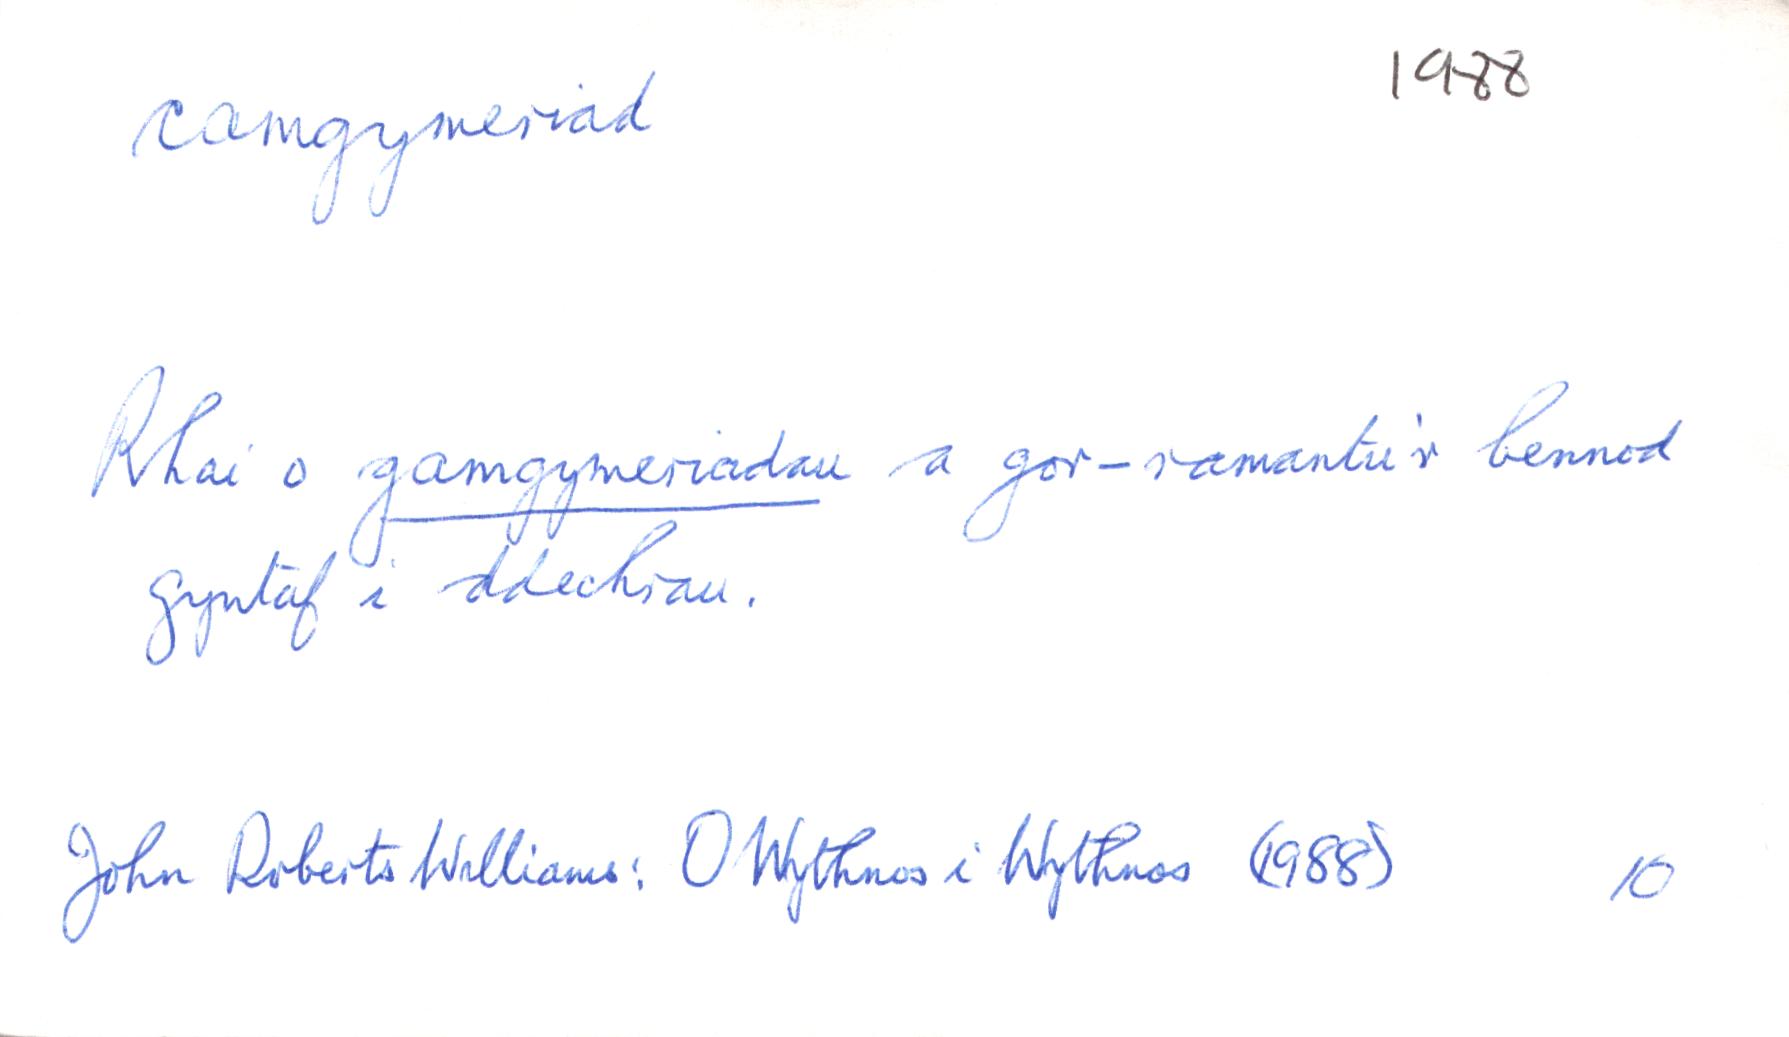 camgymeriad 1988
Rhai o gamgymeriadau a gor-ramantu'r bennod
gyntaf i ddechrau.
John Roberts Williams: O Wythnos i Wythnos (1988) 10